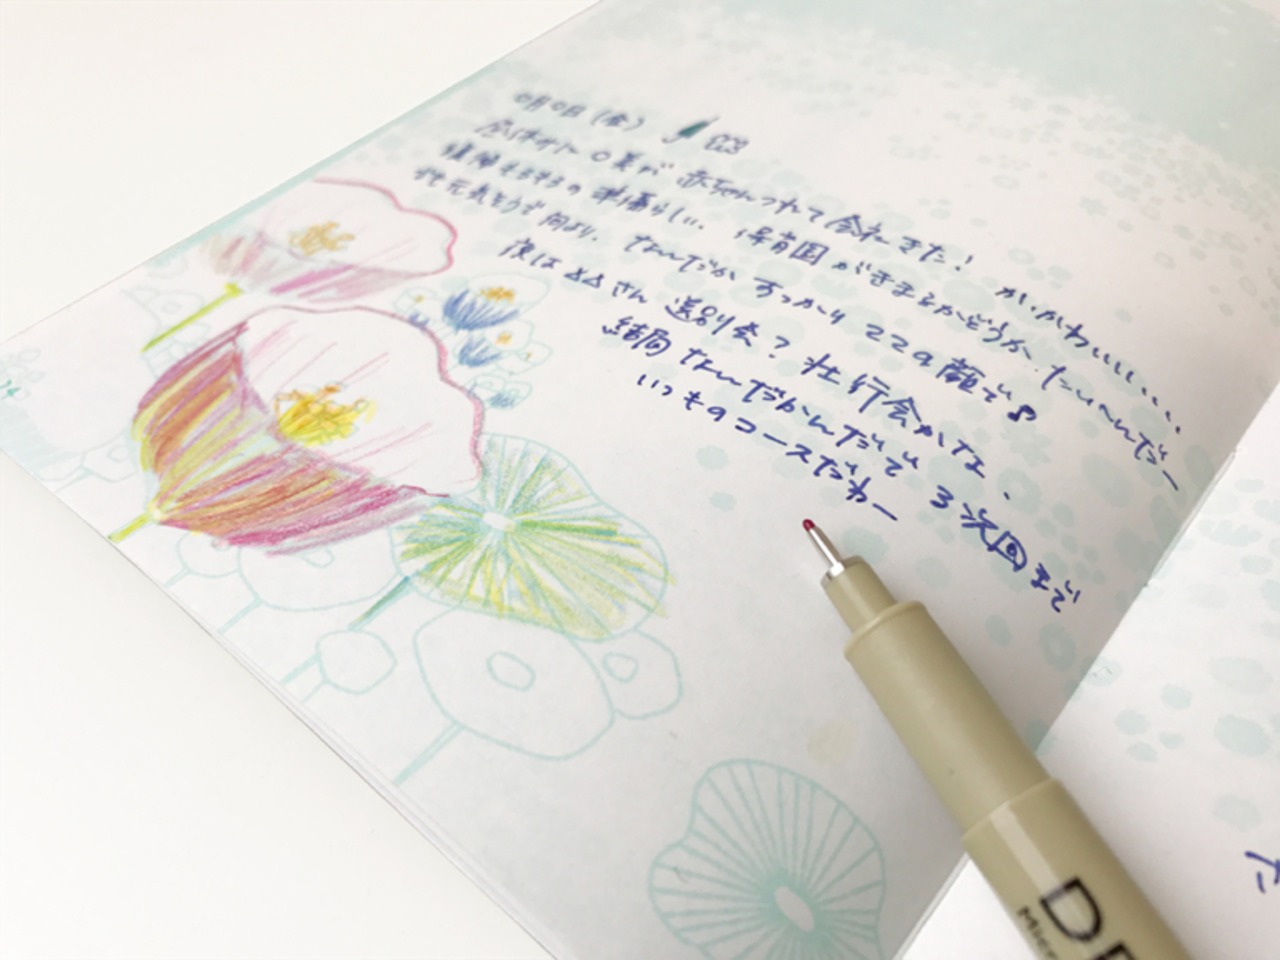 〇月〇日(金)
〇美が 赤ちゃんつれて会社きた! か、かわいいいい、、、
復帰もそろそろの準備らしい。保育園がきまるかどうか、たいへんだー
でも元気そうで何より。なんだか すっかり ママの顔で♪
夜は△△さん 送別会?壮行会かな。
結局なんだかんだで 3次回まで
いつものコースだわー